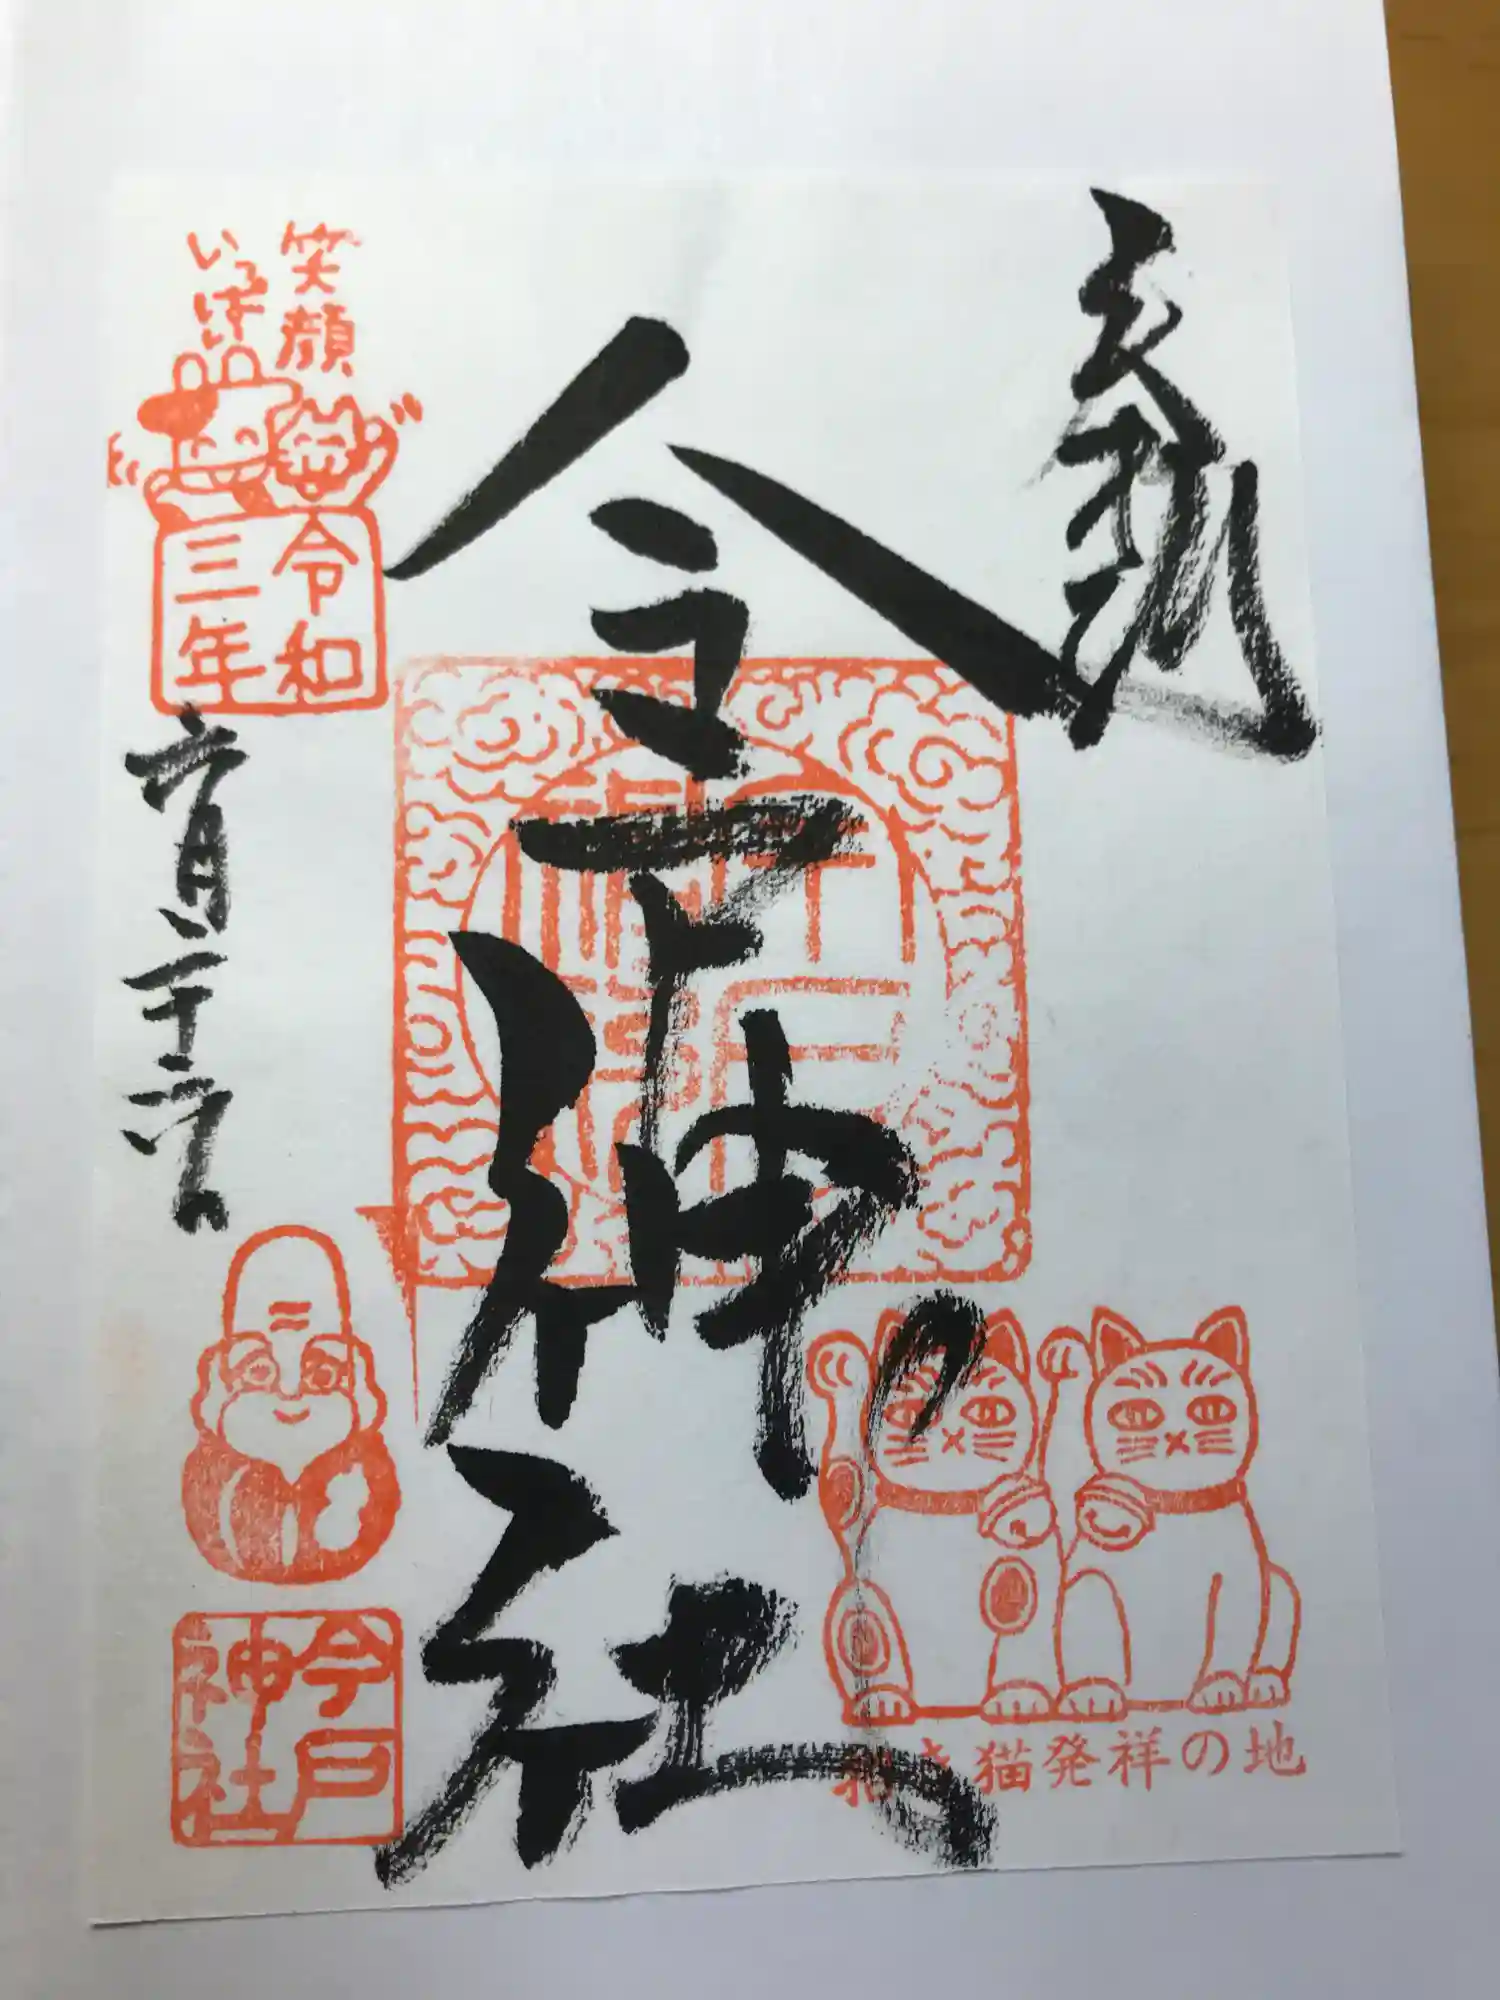 奉拝
今戸神社
笑顔
いっぱい
令和
三年
六月二十六日
今戸
神社
招き猫発祥の地